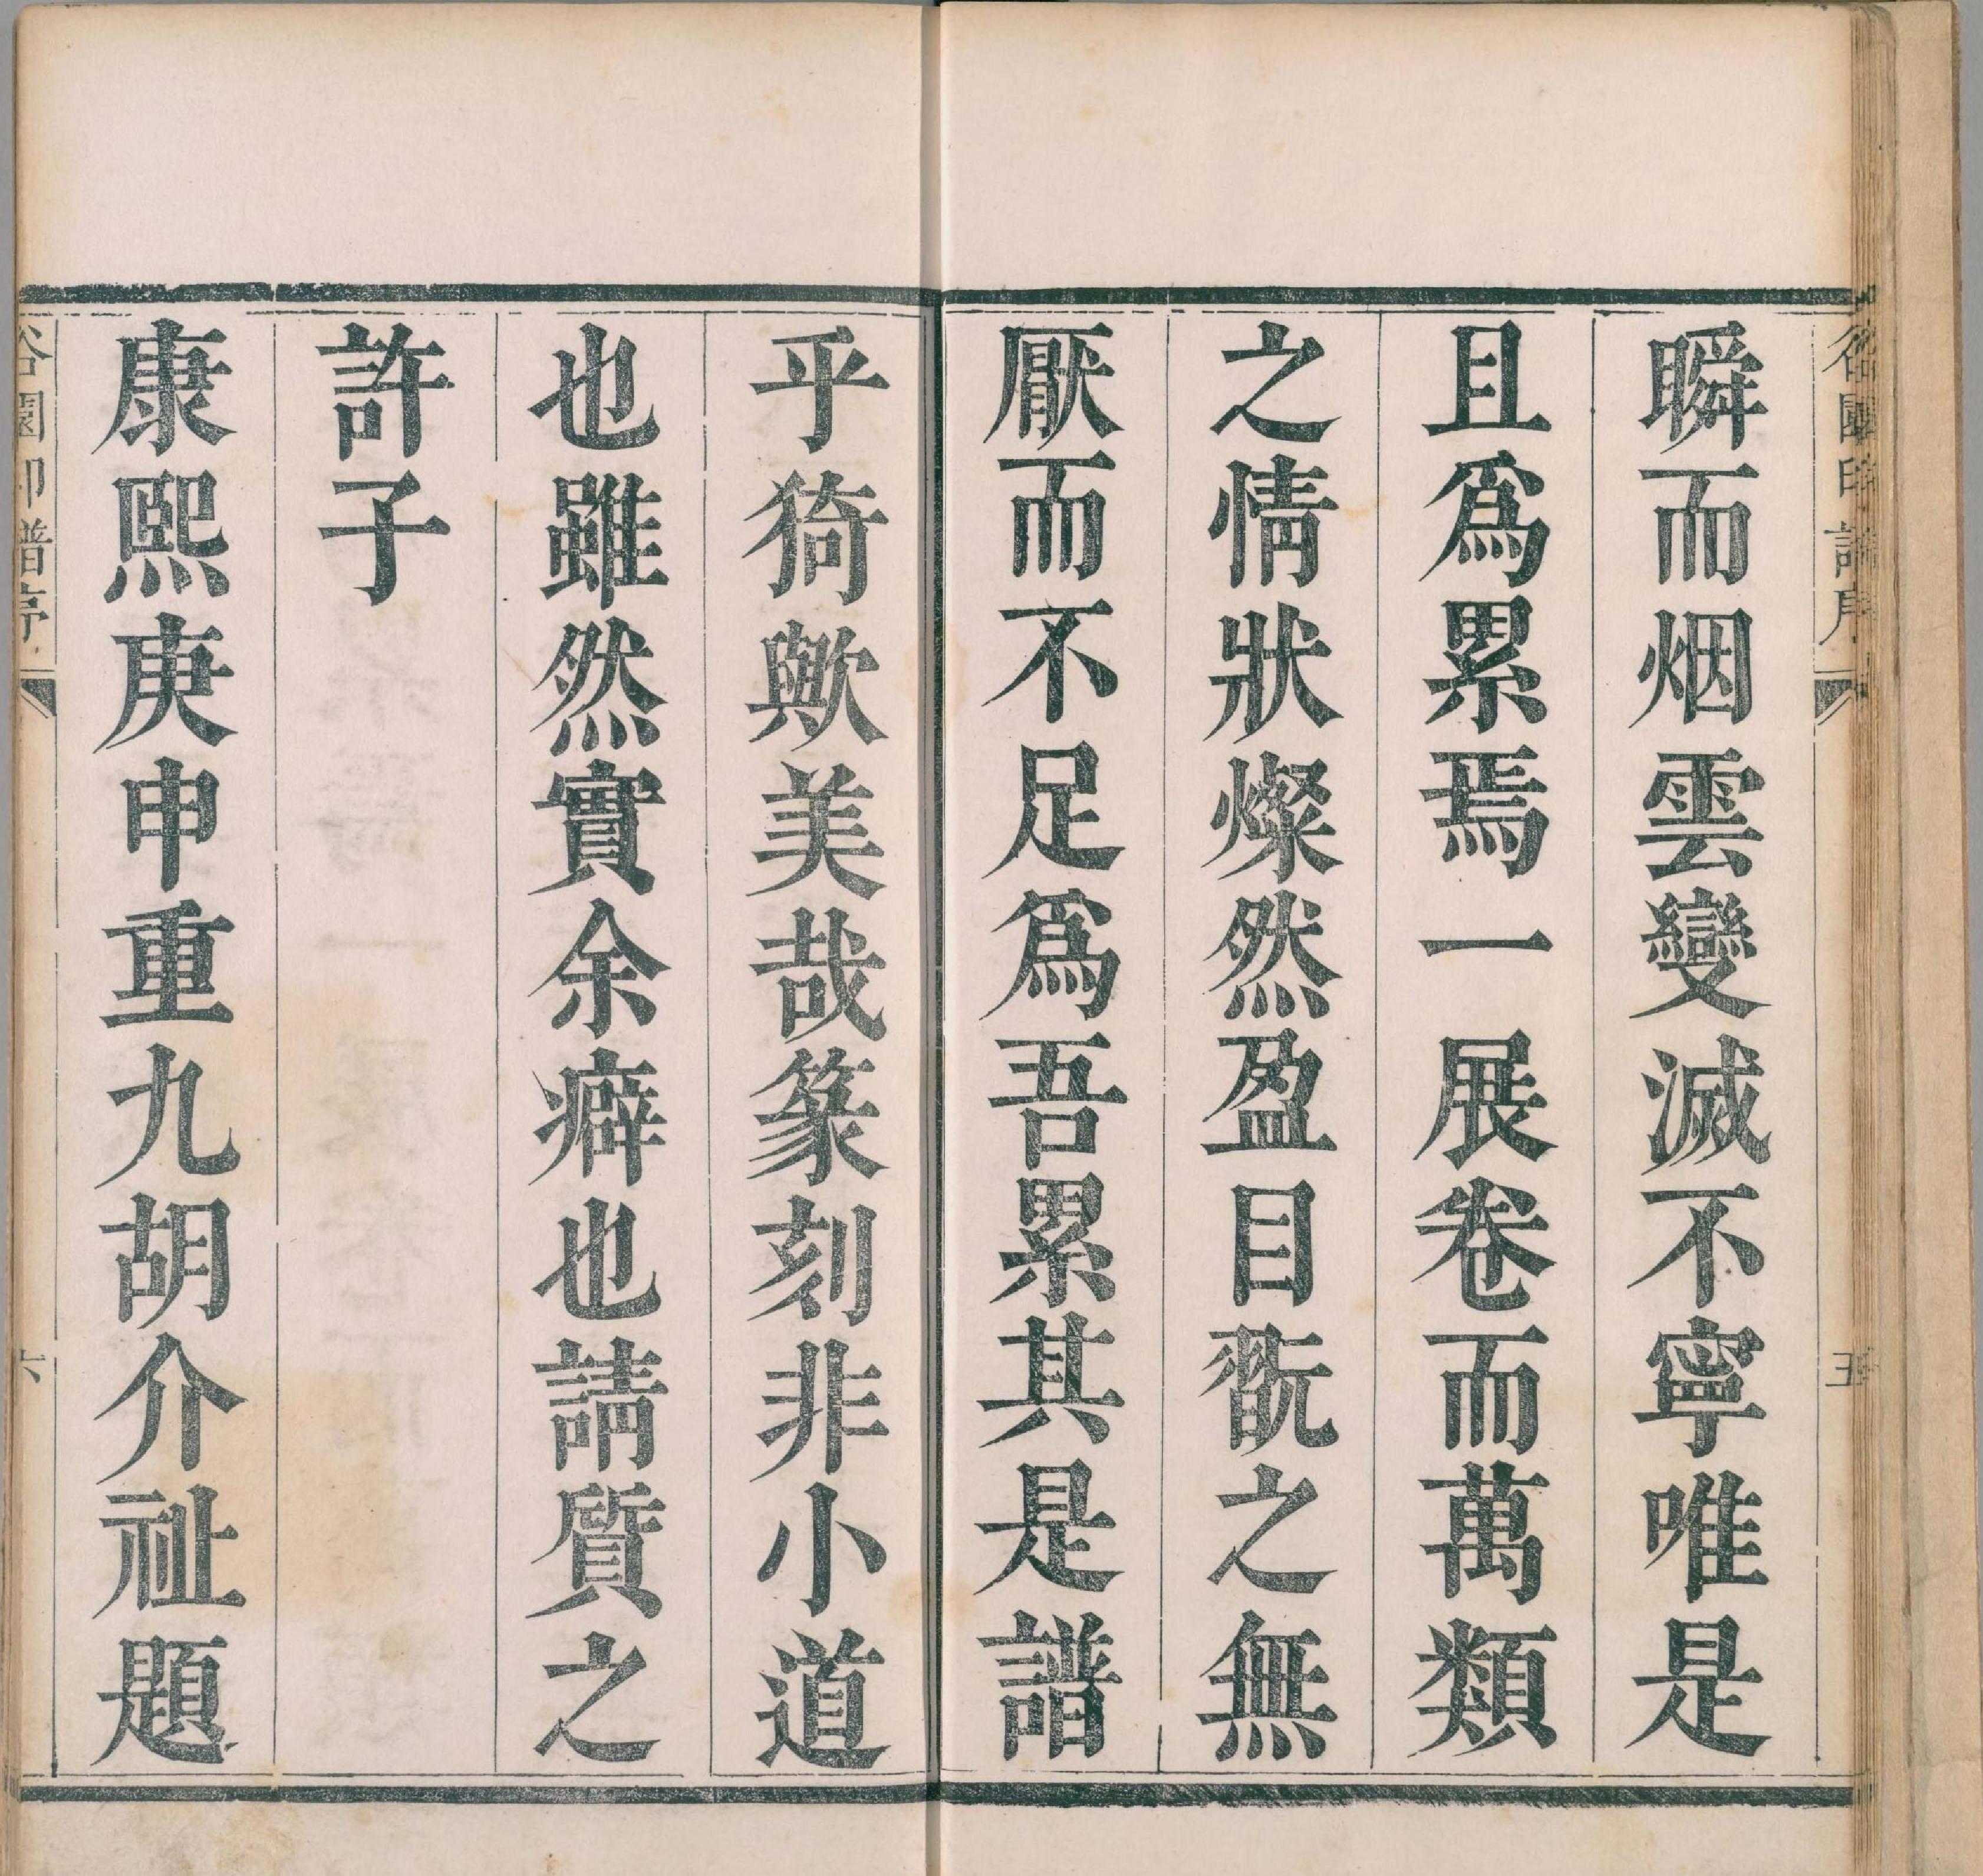 谷園印譜序
五
瞬而烟雲變滅不寧唯是
且爲累焉一展卷而萬類
之情狀燦然盈目翫之無
厭而不足爲吾累其是譜
乎猗歟美哉篆刻非小道
也雖然實余癖也請質之
許子
康熙庚申重九胡介祉題
谷園印譜序
六